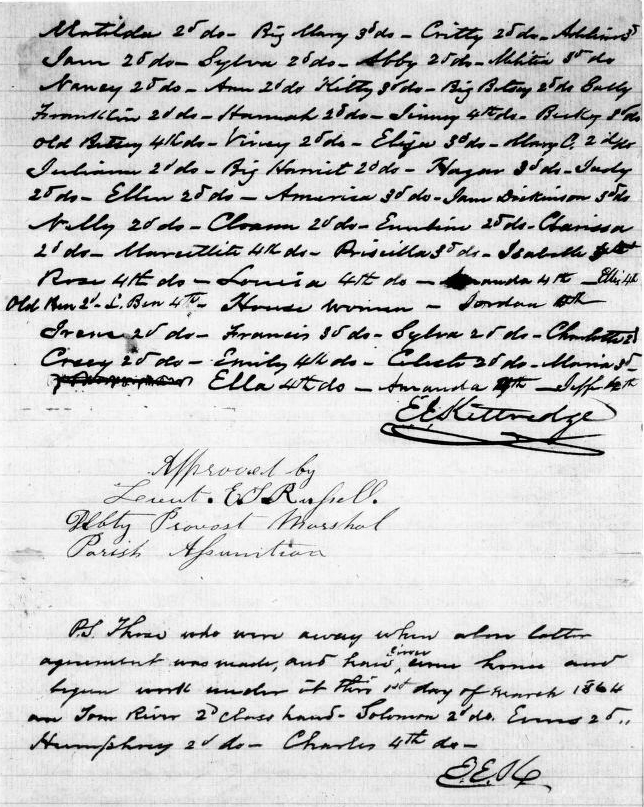 Matilda 2d do - Big Mary 3d do - Critty 2d do - Adeline 3d
Jane 2d do - Sylva 2d do - Abby 2d do - Militia 3d do
Nancy 2d do - Ann 2d do Kitty 3d do - Big Betsey 2d do Cally
Franklin 2d do - Hannah 2d do - Jinney 4th do - Becky 3d do
Old Betsey 4th do - Viney 2d do - Eliza 3d do - Mary C. 2d do
Juliann 2d do - Big Harriet 2d do - Hagar 3d do - Judy
2d do - Ellen 2d do - America 3d do - Jane Dickinson 3d do
Nelly 2d do - Cloann 2d do - Emeline 2d do - Clarissa
2d do - Marcellite 4th do - Priscilla 3d do - Isabelle 4th
Rose 4th do - Louisa 4th do - Amanda 4th - Ellis 4th
Old Ben 2d - L. Ben 4th - House women - Jordan 4th
Irene 2d do - Francis 3d do - Sylva 2d do - Charlotte 2d
Crecy 2d do - Emily 4th do - Celeste 2d do - Maria 3d -
Ella 4th do - Amanda 4th - Jeff 4th
E E Kittredge
Approved by
Lieut. E S Russell.
Dpty Provost Marshal
Parish Assumption
P.S. Those who were away when above latter
agreement was made, and have since come home and
begun work under it this 1st day of March 1864
are Tom River 2d class hand - Solomon 2d do. Enos 2d ,,
Humphrey 2d do - Charles 4th do -
E.E.K